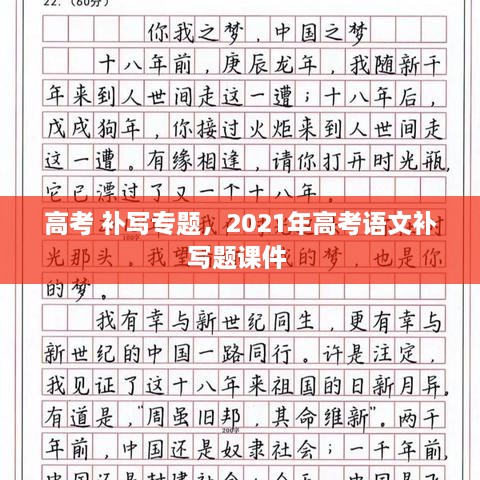 22.（60分）
你我之梦，中国之梦
十八年前，庚辰龙年，我随新千
年来到人世间走这一遭；十八年后，
戊戌狗年，你接过火炬来到人世间走
这一遭。有缘相逢，请你打开时光瓶，
它已漂过了又一个十八年
高考 补写专题，2021年高考语文补
写题课件
光那头。我
也是你
的梦。
我有幸与新世纪同生，更有幸与
新世纪的中国一路同行。许是注定，
我见证了这十八年来祖国的日新月异。
有道是，“周虽旧邦，其命维新”。两千
200字
年前，中国还是奴隶社会；一千年前，